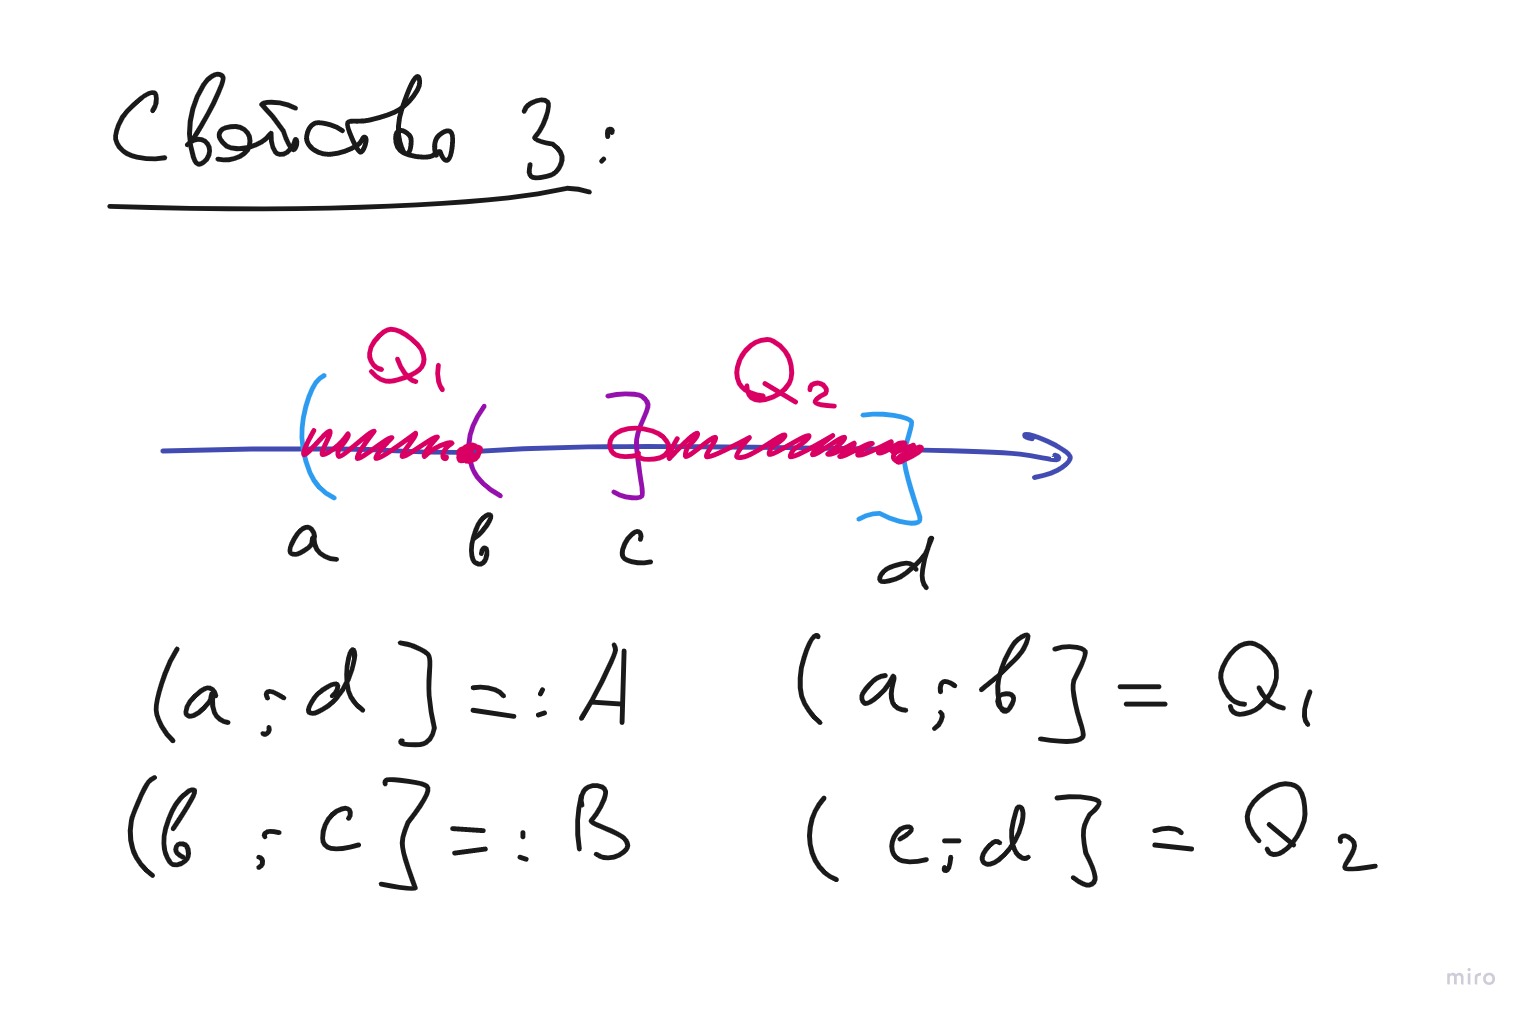 Свойство 3:
Q₁ Q₂
a b c d
(a ; d] =: A (a ; b] = Q₁
(b ; c] =: B (c ; d] = Q₂
miro